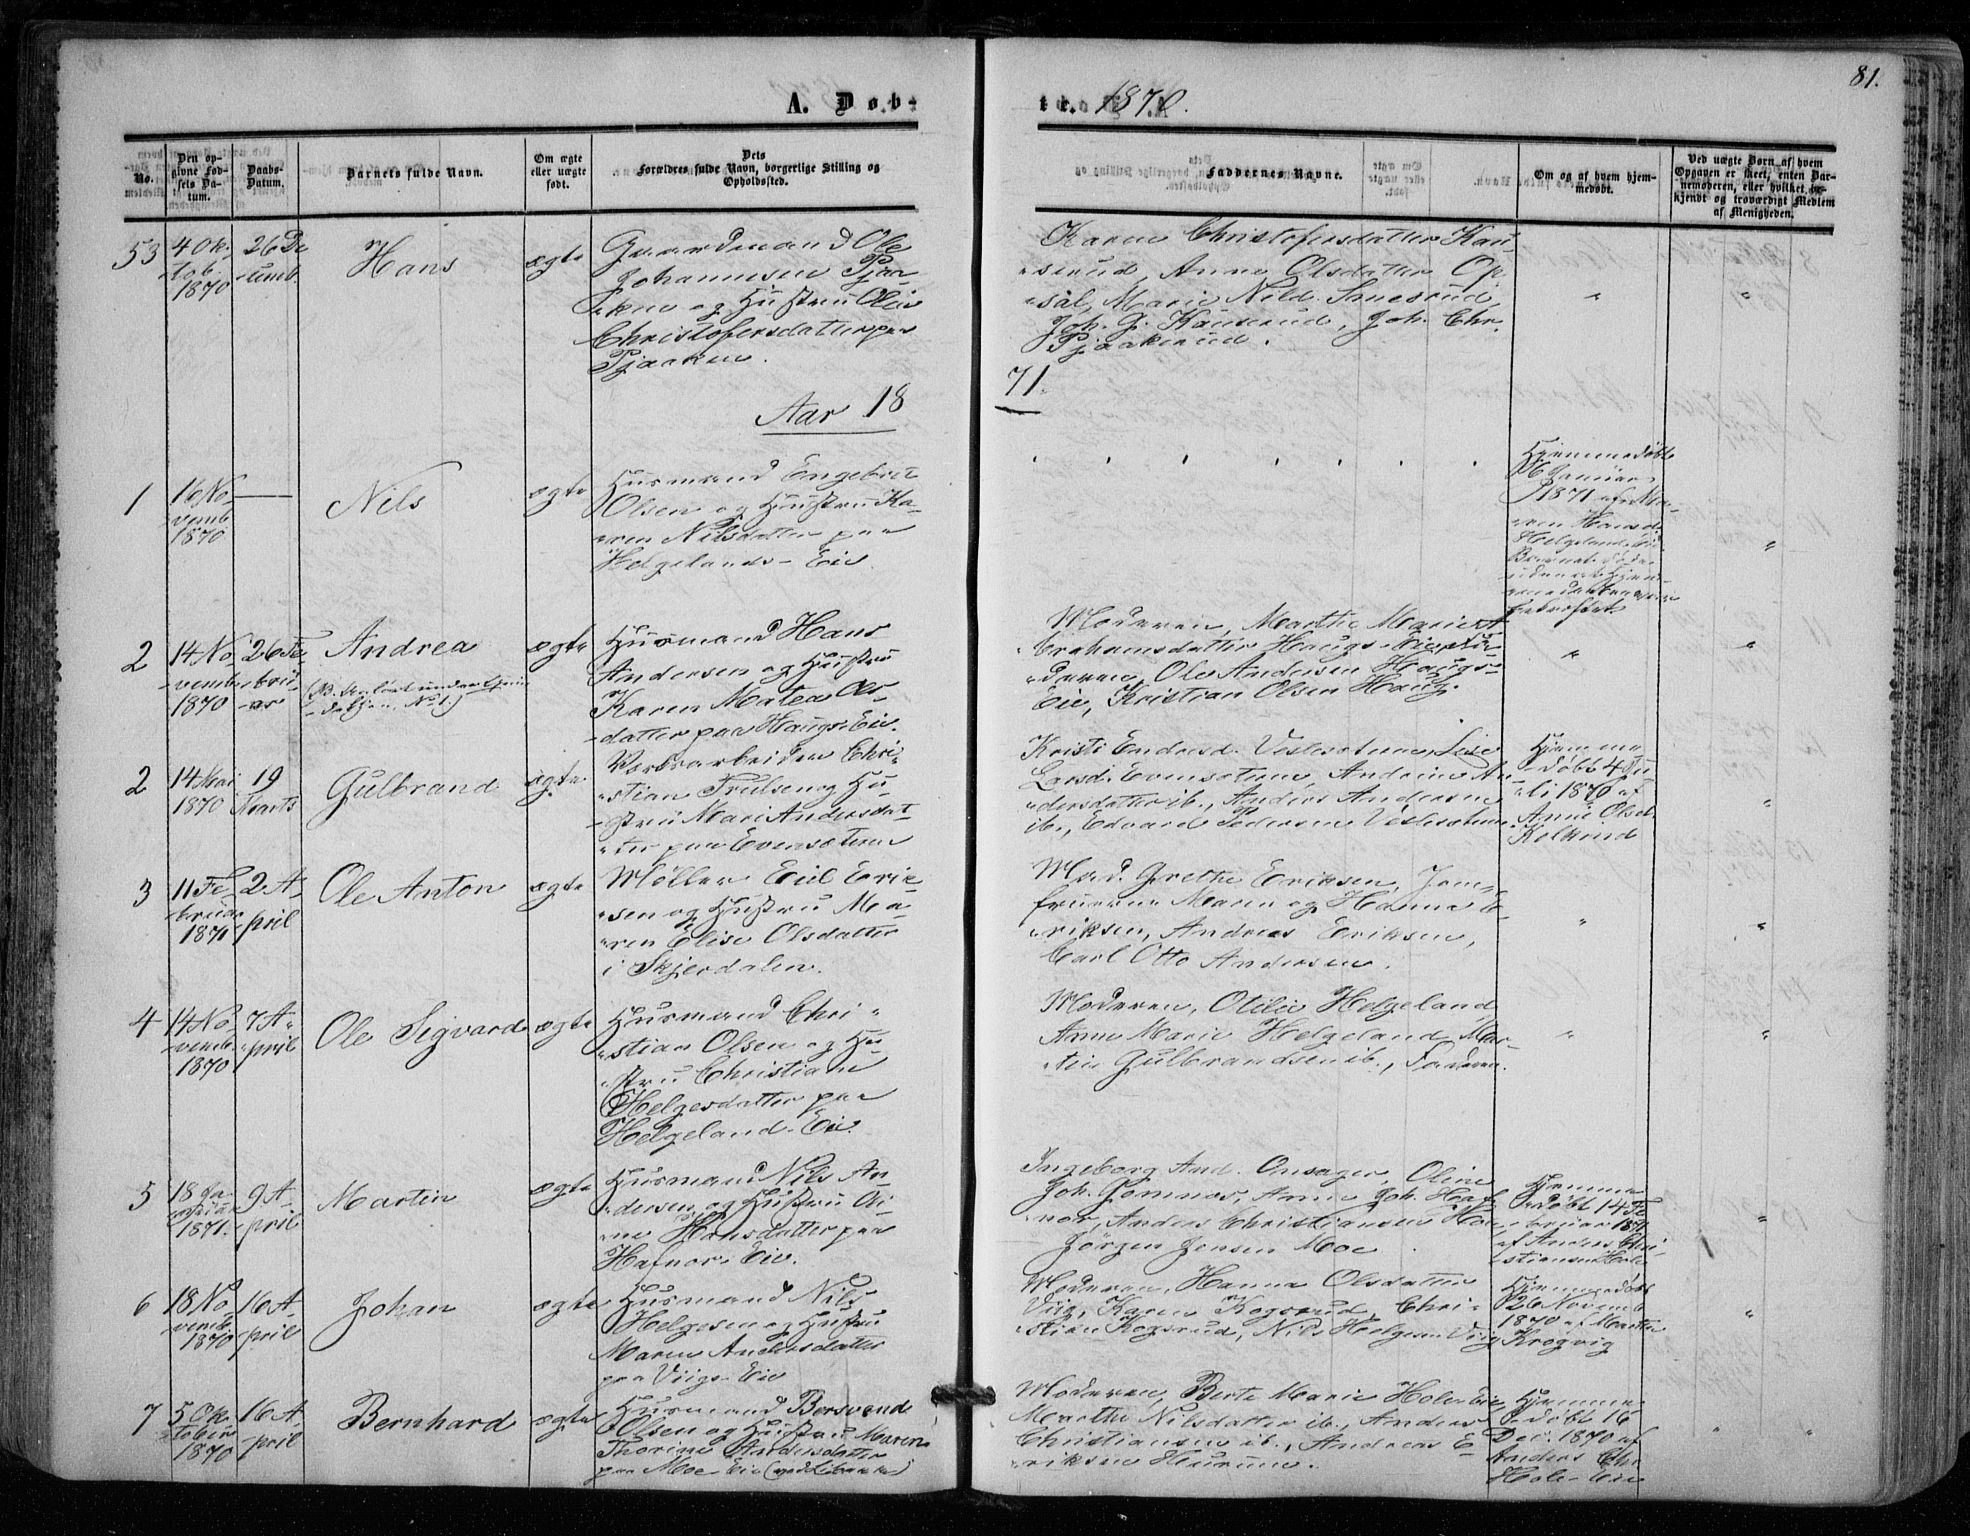 81.
A. Døb-
te. 1870.
No.
Den op-
givne Fød-
sels Da-
tum.
Daabs-
Datum.
Barnets fulde Navn.
Om ægte
eller uægte
født.
Dets
Forældres fulde Navn, borgerlige Stilling og
Opholdssted.
Faddernes Navne.
Om og af hvem hjem-
medøbt.
Ved uægte Børn af hvem
Opgaven er skeet, enten Bar-
nemoderen, eller hvilket be-
kjendt og troværdigt Medlem
af Menigheden.
53
4 Ok-
tob.
1870
26 De-
cemb.
Hans
ægte
Gaardmand Ole
Johannesen Pjaa-
ken og Hustru Olia
Christofersdatter paa
Pjaaken.
Karen Christofersdatter Kau-
serud, Anne Olsdatter Op-
sal, Marie Nild. Smesrud,
Joh. G. Kauserud, Joh. Chr.
Pjaakerud.
Aar 18
71.
1
16 No-
vemb.
1870
Nils
ægte
Husmand Engebret
Olsen og Hustru Ka-
ren Nilsdatter paa
Helgelands-Eie.
Hjemmedøbt
6 Januar
1871 af Ma-
ren Hansd.
Helgelands Eie
2
14 No-
vemb.
1870
26 Fe-
bru-
ar
Andrea
ægte
Husmand Hans
Andersen og Hustru
Karen Matea Ols-
datter paa Haugs-Eie.
Moderen, Marthe Marie A-
brahamsdatter Haugs-Eie, Fa-
deren, Ole Andersen Haugs-
Eie, Kristian Olsen Haug.
2
14 Mai
1870
19
Marts
Gulbrand
ægte
Christian Trulsen og Hu-
stru Mari Andersdat-
ter paa Evensæteren
Kristi Endresd. Veslesæteren, Lise
Larsd. Evensæteren, Andrine An-
dersdatter ib., Anders Andersen
ib., Edvard Pedersen Veslesæteren
Hjemme-
døbt 4 Ju-
li 1870 af
Anne Olsd.
3
11 Fe-
bruar
1871
2 A-
pril
Ole Anton
ægte
Møller Eiel Erik-
sen og Hustru Ma-
ren Elise Olsdatter
i Skjerdalen.
Mad. Grethe Eriksen, Jom-
fruerne Maren og Hanna E-
riksen, Andreas Eriksen,
Carl Otto Andersen.
4
14 No-
vemb.
1870
7 A-
pril
Ole Sigvard
ægte
Husmand Chri-
stian Olsen og Hu-
stru Christiane
Helgesdatter paa
Helgeland-Eie.
Moderen, Otilie Helgeland,
Anne Marie Helgeland, Mar-
tin Gulbrandsen ib., Faderen.
5
18 Ja-
nuar
1871.
9 A-
pril
Martin
ægte
Husmand Nils An-
dersen og Hustru Oli-
ne Hansdatter paa
Hafnor-Eie.
Ingeborg And. Onsager, Oline
Joh. Domnes, Anne Joh. Haf-
nor, Anders Christiansen Hole
Jörgen Jensen Moe
Hjemme-
døbt 14 Fe-
bruar 1871
af Anders Chri-
stiansen Hole
6
18 No-
vemb.
1870
16 A-
pril
Johan
ægte
Husmand Nils
Helgesen og Hustru
Maren Andersdatter
paa Viigs-Eie
Moderen, Hanna Olsdatter
Viig, Karen Kogsrud, Chri-
stian Kogsrud, Nils Helgesen Viig
Hjemmedøbt
26 Novemb.
1870 af Marthe
Krogvig
7
5 Ok-
tober
1870
16 A-
pril
Bernhard
ægte
Husmand Bersvend
Olsen og Hustru Maren
Thorine Andersdatter
paa Moe-Eie
Moderen, Berte Marie Hole-Eie,
Marthe Nilsdatter ib., Anders
Christiansen ib., Andreas E-
riksen Hurum.
Hjemme-
døbt 16
Dec. 1870 af
Anders Chr.
Hole-Eie